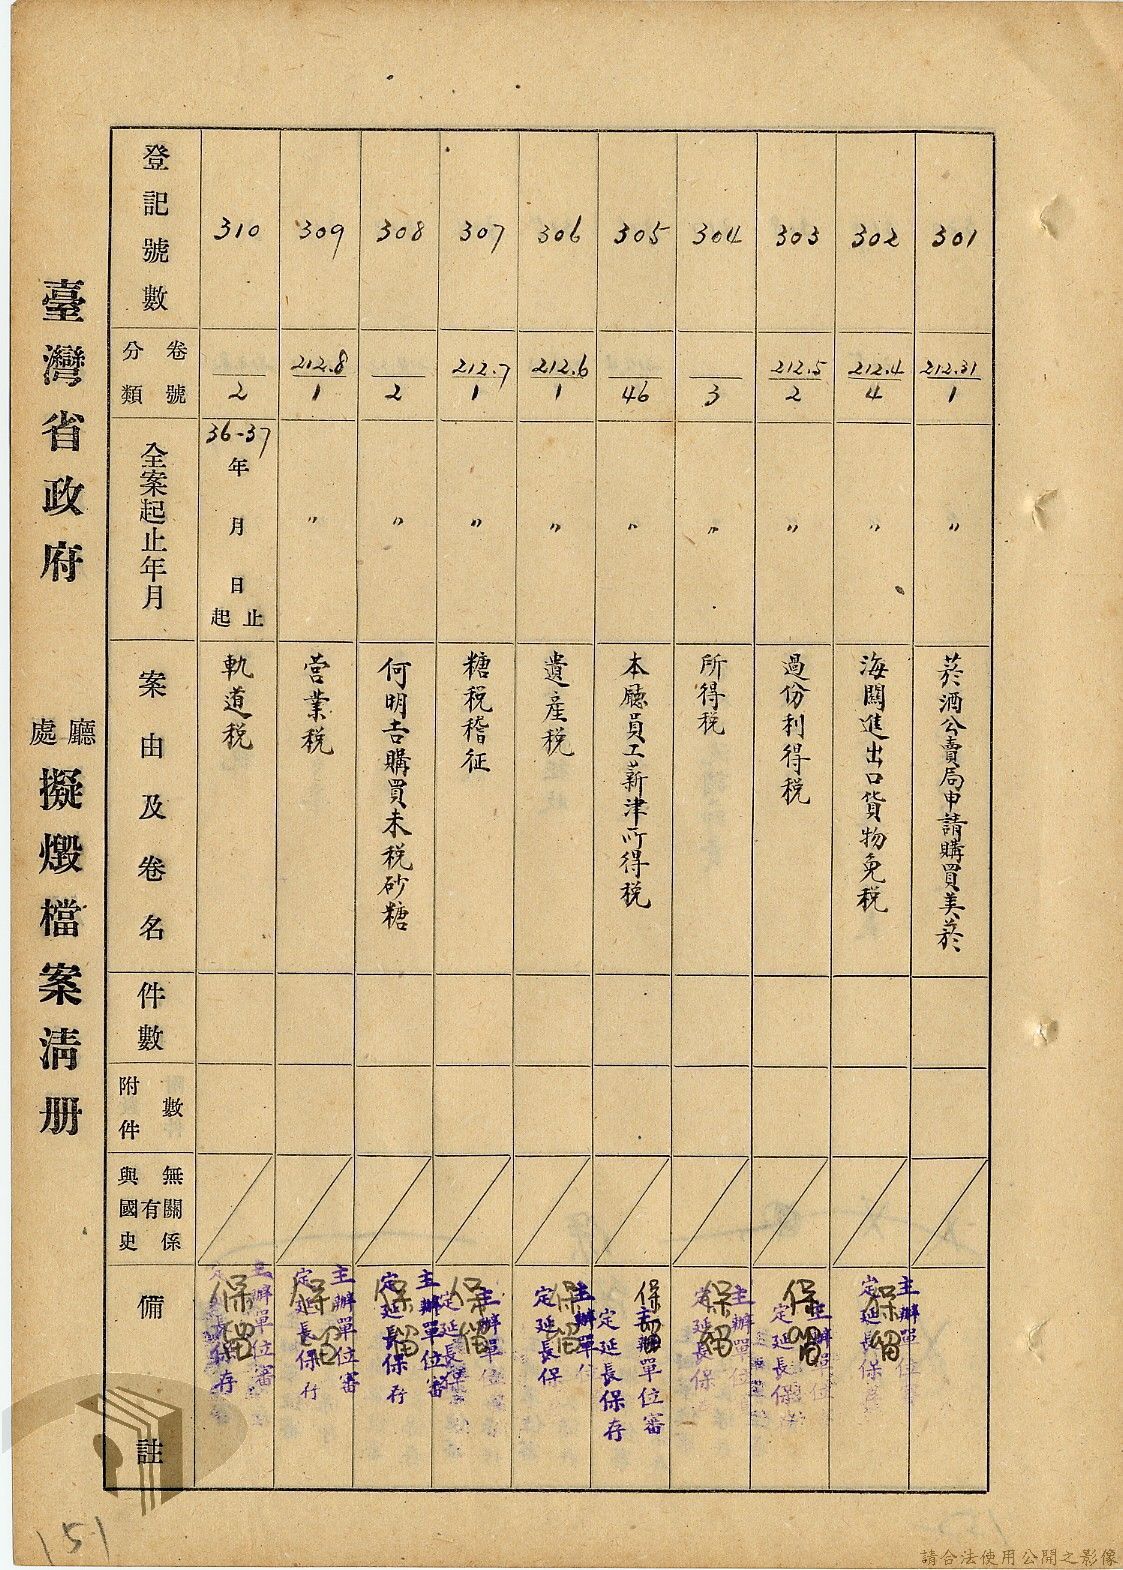 臺灣省政府 廳處 擬燬檔案清册
登記號數
卷號
分類
全案起止年月
案由及卷名
件數
附件數
與國史有無關係
備註
310
2
36-37
年 月 日
起 止
軌道稅
保留
主辦單位審
定延長保存
309
212.8
1
〃
營業稅
保留
主辦單位審
定延長保存
308
2
〃
何明吉購買未稅砂糖
保留
主辦單位審
定延長保存
307
212.7
1
〃
糖稅稽征
保留
主辦單位
定延長保
306
212.6
1
〃
遺產稅
保留
主辦單位
定延長保
305
46
〃
本廳員工薪津所得稅
保留
主辦單位審
定延長保存
304
3
〃
所得稅
保留
主辦單位
定延長保
303
212.5
2
〃
過份利得稅
保留
主辦單位
定延長保存
302
212.4
4
〃
海關進出口貨物免稅
保留
主辦單位
定延長保
301
212.31
1
〃
菸酒公賣局申請購買美菸
151
請合法使用公開之影像